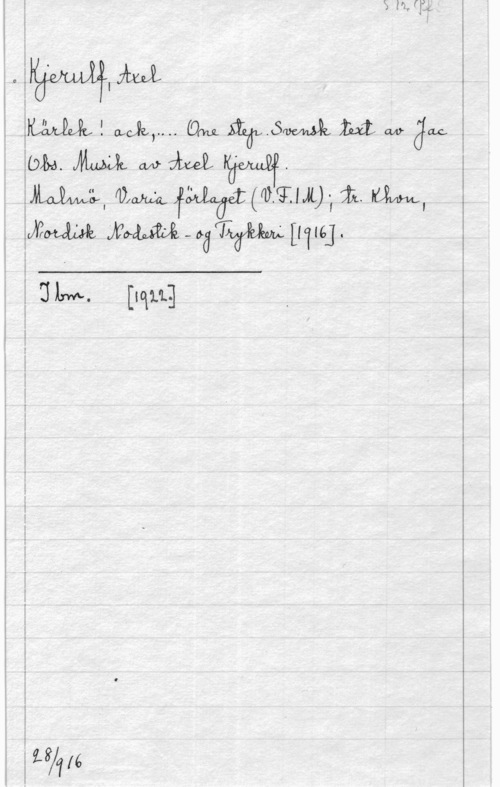 Kjerulf, Axel
Kärlek! ack,.... One step. Svensk text av Jac
Obs. Musik av Axel Kjerulf.
Malmö, Varia förlaget (V.F.I M); tr. Khvn,
Nordisk Nodestik - og Trykkeri [1916].
Ibm. [1922.]
28/916